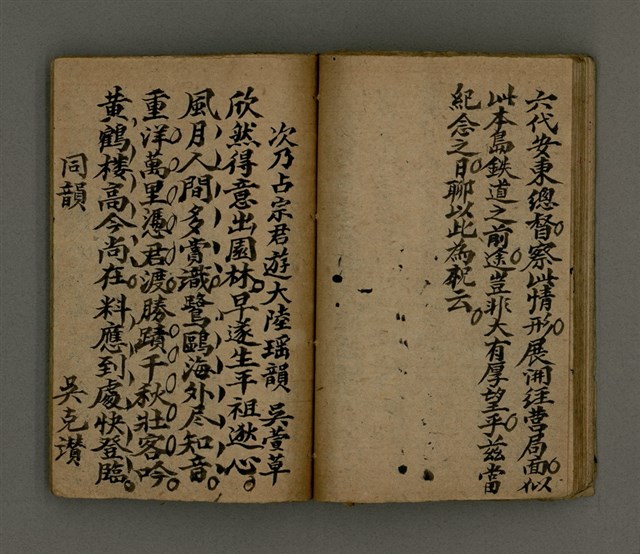 六代安東總督察此情形展開经营局面似
此本島鉄道之前途豈非大有厚望乎茲當
紀念之日聊以此為祝云
次乃占宗君遊大陸瑶韻　吳萱草
欣然得意出園林早遂生平祖逖心
風月人間多賞識鷺鷗海外尽知音
重洋萬里憑君渡勝蹟千秋壯客吟
黃鶴楼高今尚在料應到處快登臨
同韻　吳克讃